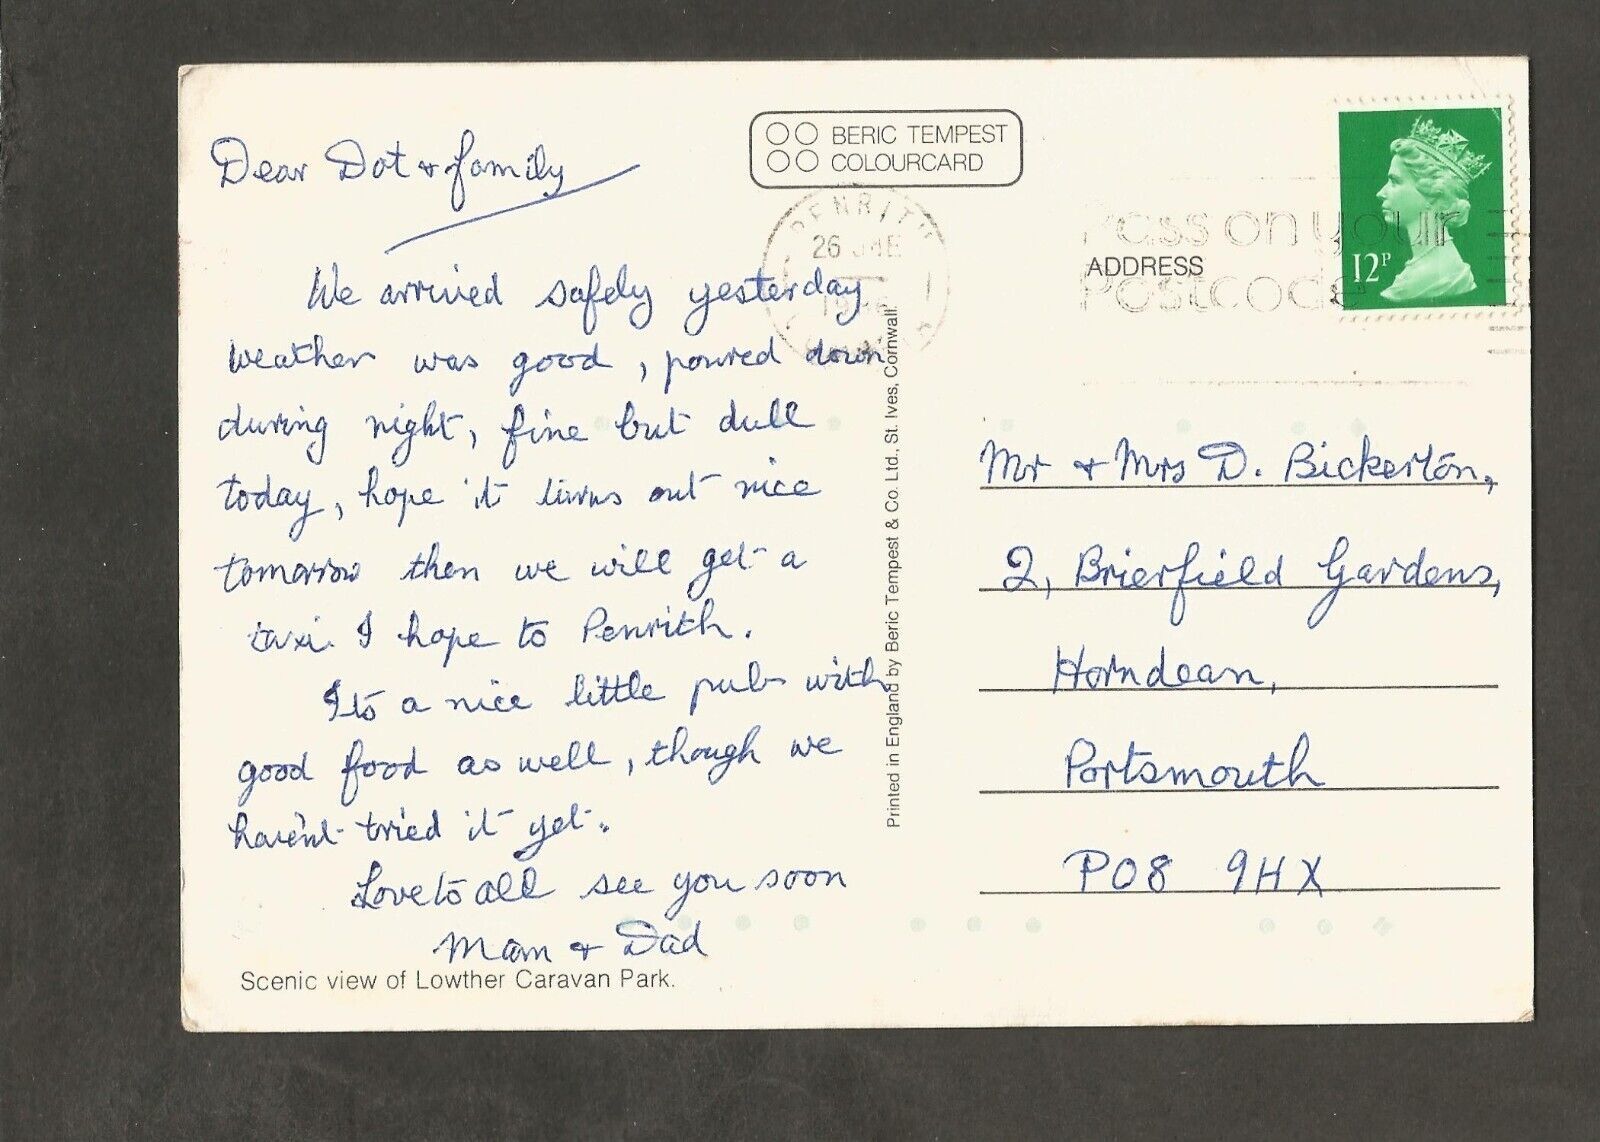 BERIC TEMPEST
COLOURCARD
Dear Dot & family
We arrived safely yesterday
weather was good, poured down
during night, fine but dull
today, hope it turns out nice
tomorrow then we will get a
taxi I hope to Penrith.
Its a nice little pub with
good food as well, though we
haven't tried it yet.
Love to all see you soon
Mam & Dad
Scenic view of Lowther Caravan Park.
Printed in England by Beric Tempest & Co. Ltd., St. Ives, Cornwall.
PENRITH
26 JNE
Pass on your
Postcode
12P
ADDRESS
Mr & Mrs D. Bickerton,
2, Brierfield Gardens,
Horndean,
Portsmouth
PO8 9HX